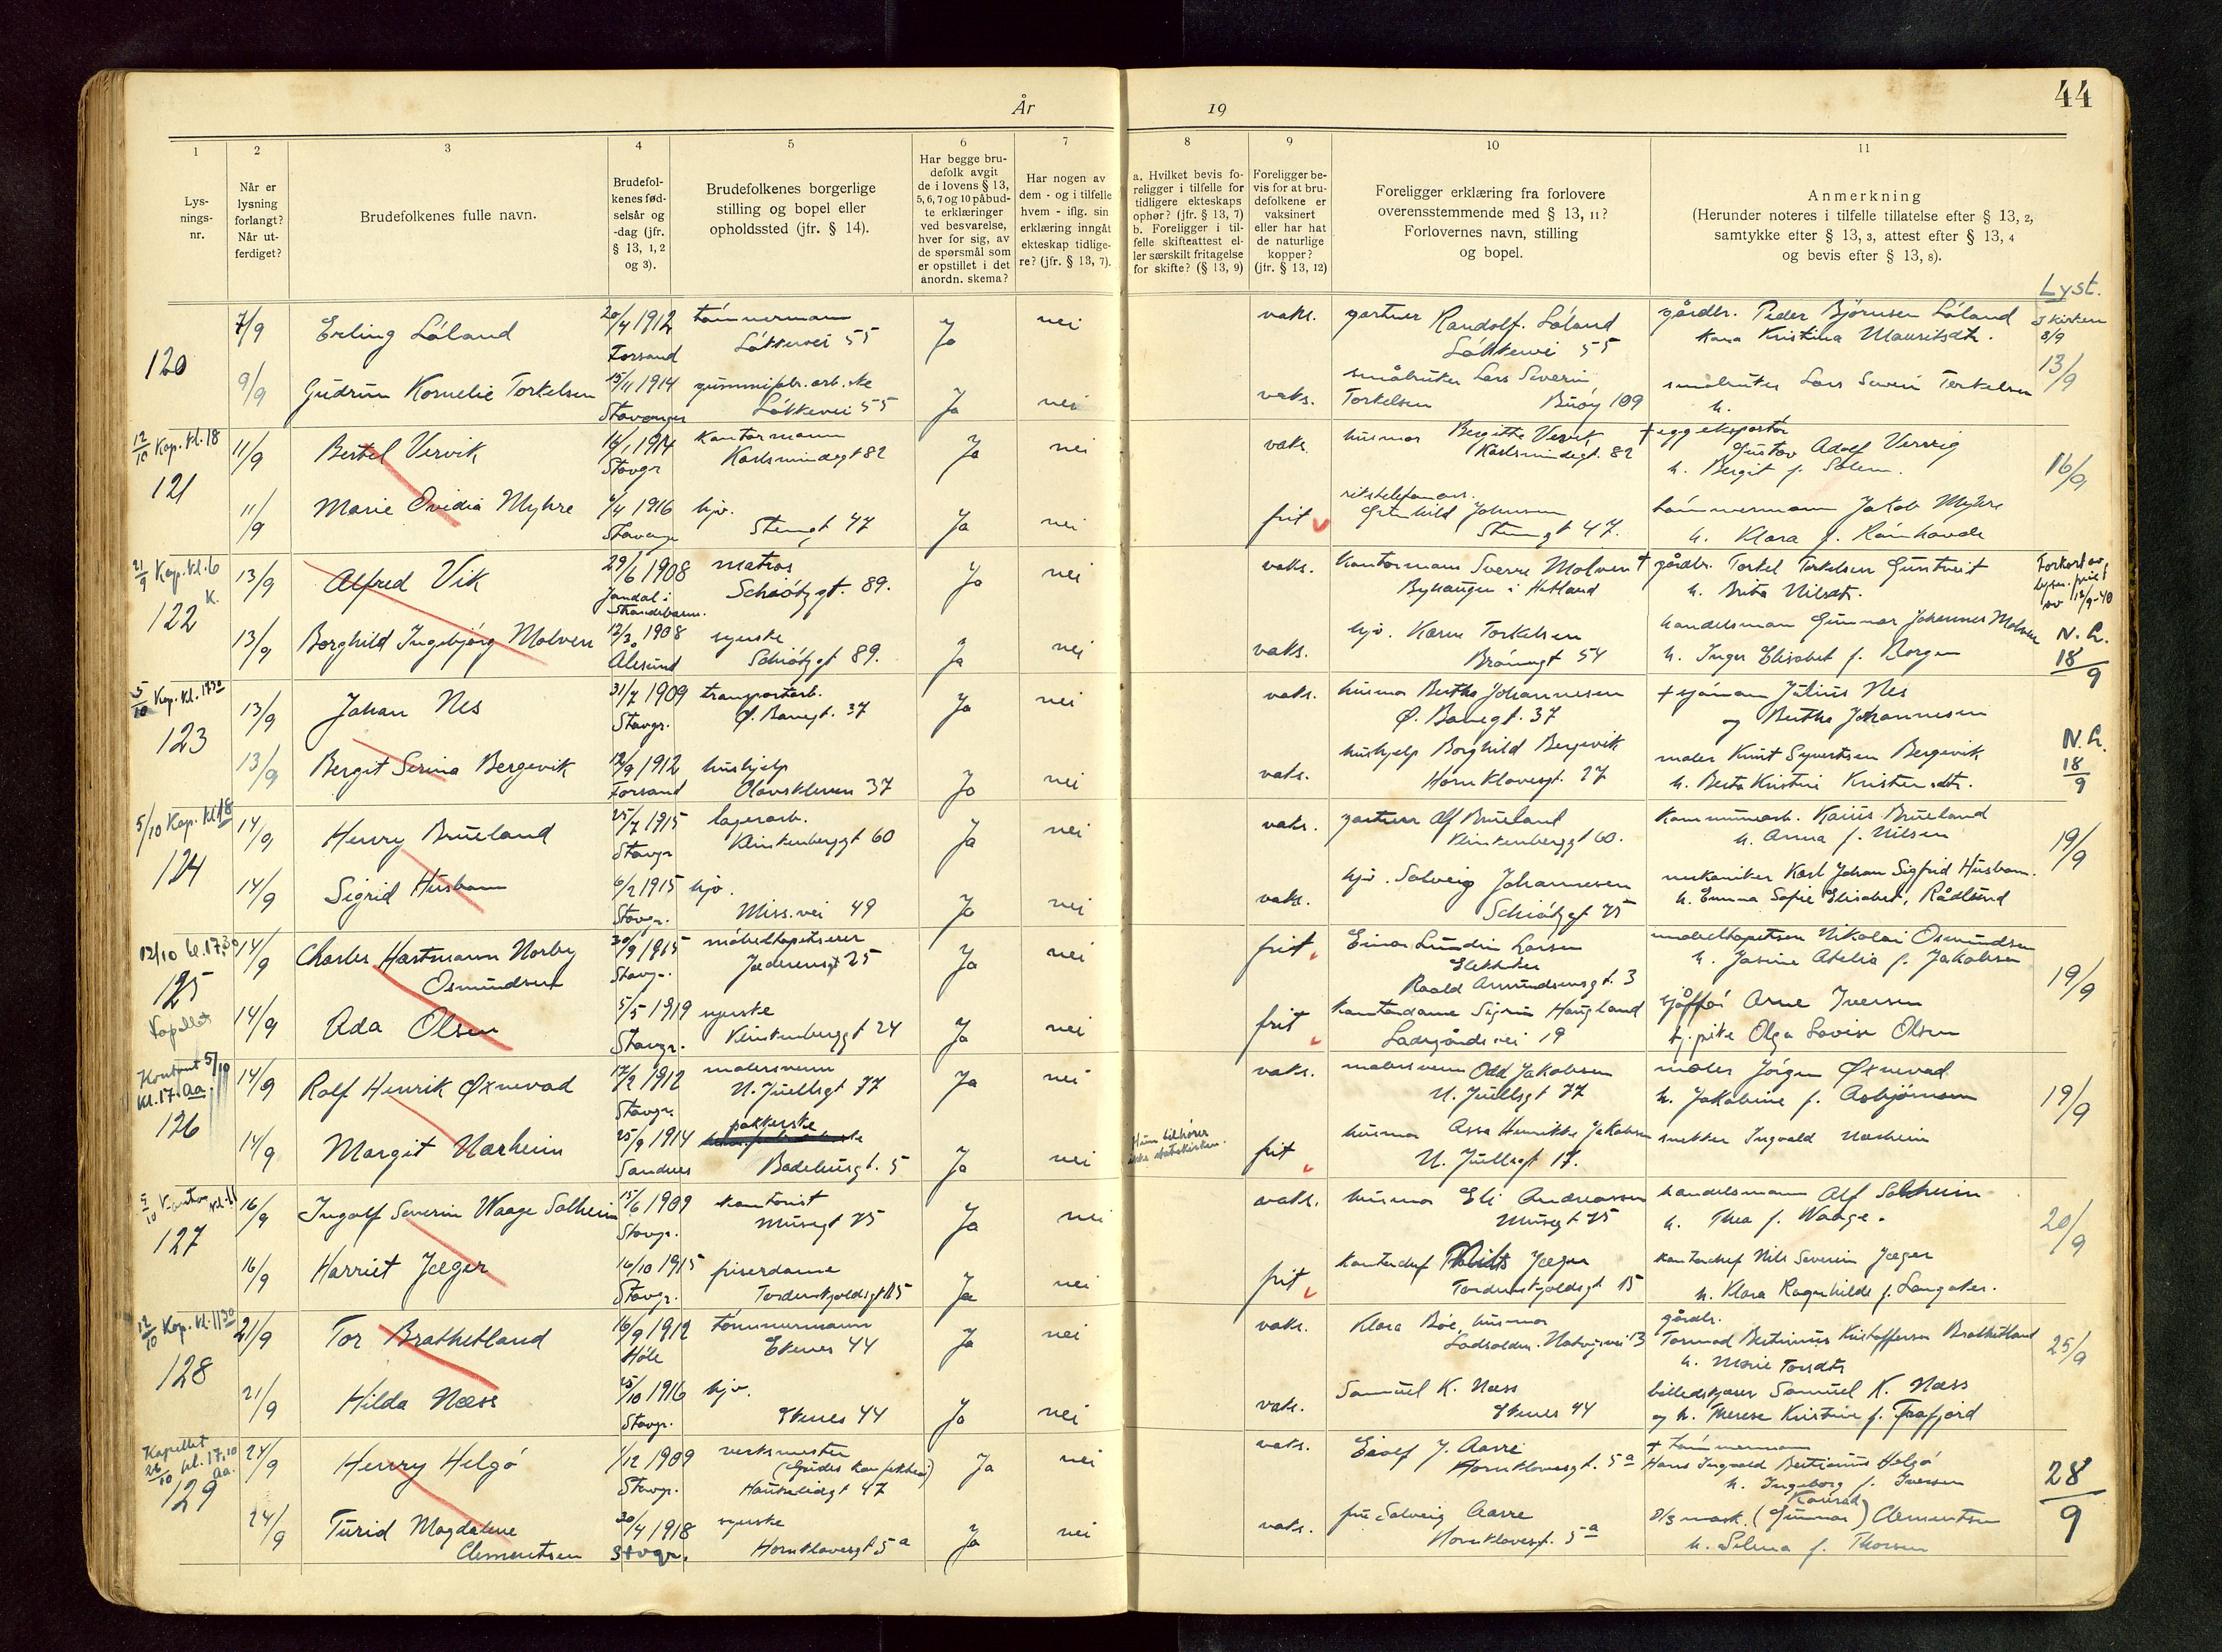 44
År 19
1
Lys-
nings-
nr.
2
Når er
lysning
forlangt?
Når ut-
ferdiget?
3
Brudefolkenes fulle navn.
4
Brudefol-
kenes fød-
selsår og
-dag (jfr.
§ 13, 1, 2
og 3).
5
Brudefolkenes borgerlige
stilling og bopel eller
opholdssted (jfr. § 14).
6
Har begge bru-
defolk avgit
de i lovens § 13,
5, 6, 7 og 10 påbud-
te erklæringer
ved besvarelse,
hver for sig, av
de spørsmål som
er opstillet i det
anordn. skema?
7
Har nogen av
dem - og i tilfelle
hvem - iflg. sin
erklæring inngåt
ekteskap tidlige-
re? (jfr. § 13, 7).
8
a. Hvilket bevis fo-
religger i tilfelle for
tidligere ekteskaps
ophør? (jfr. § 13, 7)
b. Foreligger i til-
felle skifteattest el-
ler særskilt fritagelse
for skifte? (§ 13, 9)
9
Foreligger be-
vis for at bru-
defolkene er
vaksinert
eller har hat
de naturlige
kopper?
(jfr. § 13, 12)
10
Foreligger erklæring fra forlovere
overensstemmende med § 13, 11?
Forlovernes navn, stilling
og bopel.
11
Anmerkning
(Herunder noteres i tilfelle tillatelse efter § 13, 2,
samtykke efter § 13, 3, attest efter § 13, 4
og bevis efter § 13, 8).
Lyst.
120
7/9 Erling Løland 20/4 1912 tømmermann Ja nei vaks. gartner Randolf Løland gårdbr. Peder Bjørnsen Løland I kirken
Forsand Løkkevei 55 Løkkevei 55 Kona Kristina Mauritsdtr. 8/9
9/9 Gudrun Kornelie Torkelsen 15/11 1914 gummifabr.arb.ske Ja nei vaks. småbruker Lars Severin småbruker Lars Severin Torkelsen 13/9
Stavanger Løkkevei 55 Torkelsen Buøy 109 h.
12/10 Kap. kl. 18
121
11/9 Bertel Vervik 14/1 1914 Kontormann Ja nei vaks. husmor Bergitte Vervik + eggeksportør
Stavgr Karlsmindegt 82 Karlsmindegt. 82 Gustav Adolf Vervig 16/9
h. Bergit f. Solem.
11/9 Marie Ovidia Myhre 4/4 1916 hjv. Ja nei frit rikstelefonass. tømmermann Jakob Myhre
Stengt 47 Johnsen
Stengt 47. h. Klara f.
21/9 Kap. kl. 6
K.
122
13/9 Alfred Vik 29/6 1908 matros Ja nei vaks. Kontormann Sverre Molven + gårdbr. Torkel Torkelsen Guntveit
Jondal i Schiøtzgt. 89. Byhaugen i Hetland h. Brita Nilsdtr.
Strandebarm.
13/9 Borghild Ingebjørg Molven 12/3 1908 syerske Ja nei vaks. hjv. Karen Torkelsen handelsman Gunnar Johannes Molven N. L.
Ålesund Schiøtzgt 89. 54 h. Inger Elisabet f. Borgen 18/9
5/10 Kap. kl. 17 30
123
13/9 Johan Nes 31/7 1909 transportarb. Ja nei vaks. husmor Bertha Johannesen + sjømann Julius Nes
Stavgr. Ø. Banegt. 37 Ø. Banegt. 37 og Bertha Johannesen
13/9 Bergit Serina Bergevik 12/9 1912 hushjelp Ja nei vaks. hushjelp Borghild Bergevik maler Knut Syvertsen Bergevik N. L.
Forsand Olavskleven 37 Hornklovesgt. 27 h. Berta Kristine Kristensdtr. 18/9
5/10 Kap. kl 18
124
14/9 Henry Brueland 25/7 1915 lagerarb. Ja nei vaks. gartner Alf Brueland Kommunearb. Kaius Brueland
Stavgr Klinkenberggt 60 Klinkenberggt 60. h. Anna f. Nilsen 19/9
14/9 Sigrid Husbom 6/2 1915 hjv. Ja nei vaks. hjv. Solveig Johannesen mekaniker Karl Johan Sigfrid Husbom.
Stavgr. Miss.vei 49 Schiøtzgt 75 h. Emma Sofie Elisabet, Rådlund
12/10 kl. 17,30
125
Kapellet
14/9 Charles Hartmann Norby 30/9 1915 møbeltapetserer Ja nei frit Einar Lundin Larsen møbeltapetserer Nikolai Osmundsen
Osmundsen Stavgr. Jederensgt 25 Elektriker h. Josine Atelia f. Jakobsen
Roald Amundsensgt. 3 19/9
14/9 Ada Olsen 5/5 1919 syerske Ja nei frit kontordame Sigrun Haugland sjåffør Arne Iversen
Stavgr. Klinkenberggt 24 Ladegårdsvei 19 tj.pike Olga Lovise Olsen
Kontoret 5/10
kl. 17. Aa.
126
14/9 Rolf Henrik Øxnevad 17/2 1912 malersvenn Ja nei vaks. malersvenn Odd Jakobsen maler Jørgen Øxnevad
Stavgr. N. Juellsgt 77 N. Juellsgt 77 h. Jakobine f. Asbjørnsen 19/9
14/9 Margit Narheim 25/9 1914 pakkerske Ja nei Hun tilhører frit husmor Assa Henrikke Jakobsen snekker Ingvald Narheim
Sandnes Badehusgt. 5 ikke statskirken. N. Juellsgt 17.
5/10 Kontor kl. 11
127
16/9 Ingolf Severin Waage Solheim 15/6 1909 kontorist Ja nei vaks. husmor Eli Andreassen handelsmann Alf Solheim
Stavgr. Musegt 75 Musegt 75 h. Thea f. Waage. 20/9
16/9 Harriet Jæger 16/10 1915 friserdame Ja nei frit Kontorchef Nils Jæger kontorchef Nils Severin Jæger
Stavgr. Tordenskjoldsgt 15 Tordenskjoldsgt 15 h. Klara Ragnhilde f. Langaker.
12/10 Kap. kl. 11 30
128
21/9 Tor Brathetland 16/9 1912 tømmermann Ja nei vaks. Klara Bøe, husmor gårdbr.
Høle Ekenes 44 3 Tormod Bertinius Kristoffersen Brathetland 25/9
h. Marie Torsdtr
21/9 Hilda Næss 25/10 1916 hjv. Ja nei vaks. Samuel K. Næss billedskjærer Samuel K. Næss
Stavgr. Ekenes 44 Ekenes 44 og h. Therese Kristine f. Frafjord
Kapellet
26/10 kl. 17,10
Aa.
129
24/9 Henry Helgø 1/12 1909 verksmester Ja nei vaks. Eiolf J. Aarre + tømmermann
Stavgr. Haukeligt 47 Hornklovesgt. 5a Hans Ingvald Bertinius Helgø 28/9
h. Ingeborg f. Iversen
24/9 Turid Magdalene 30/4 1918 syerske Ja nei vaks. fru Solveig Aarre D/S mask. (Gunnar) Konrad Clementsen
Clementsen Stvgr. Hornklovesgt 5a Hornklovesgt. 5a h. Selma f. Thorsen